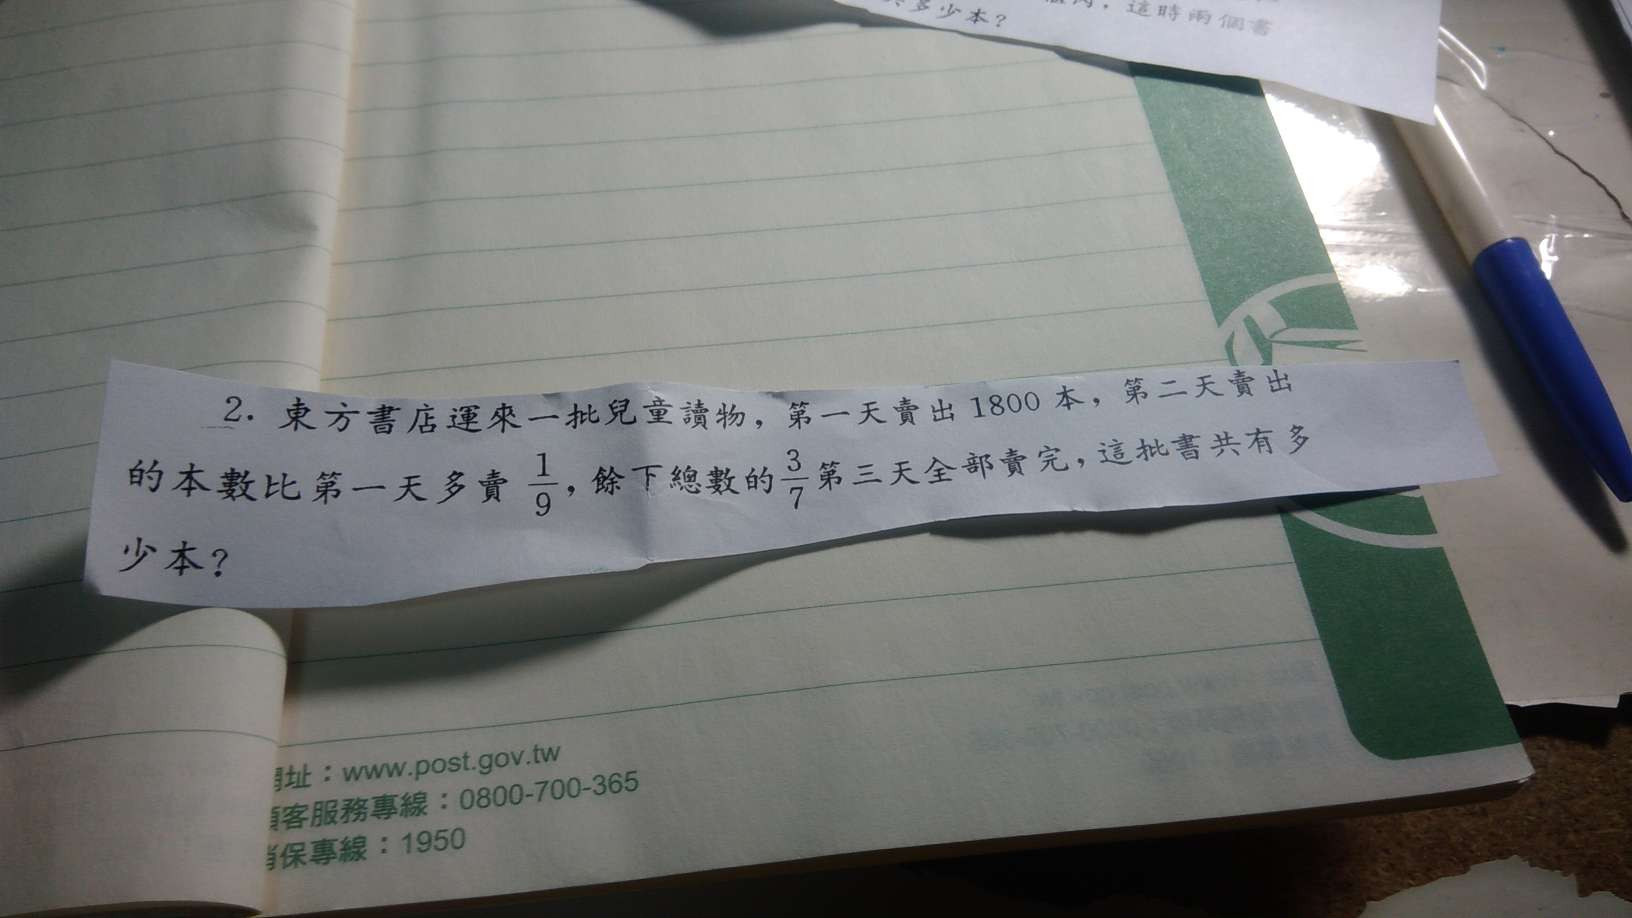 共多少本?
這時兩個書
2. 東方書店運來一批兒童讀物,第一天賣出1800本,第二天賣出
的本數比第一天多賣 1/9,餘下總數的3/7第三天全部賣完,這批書共有多
少本?
網址:www.post.gov.tw
顧客服務專線:0800-700-365
消保專線:1950